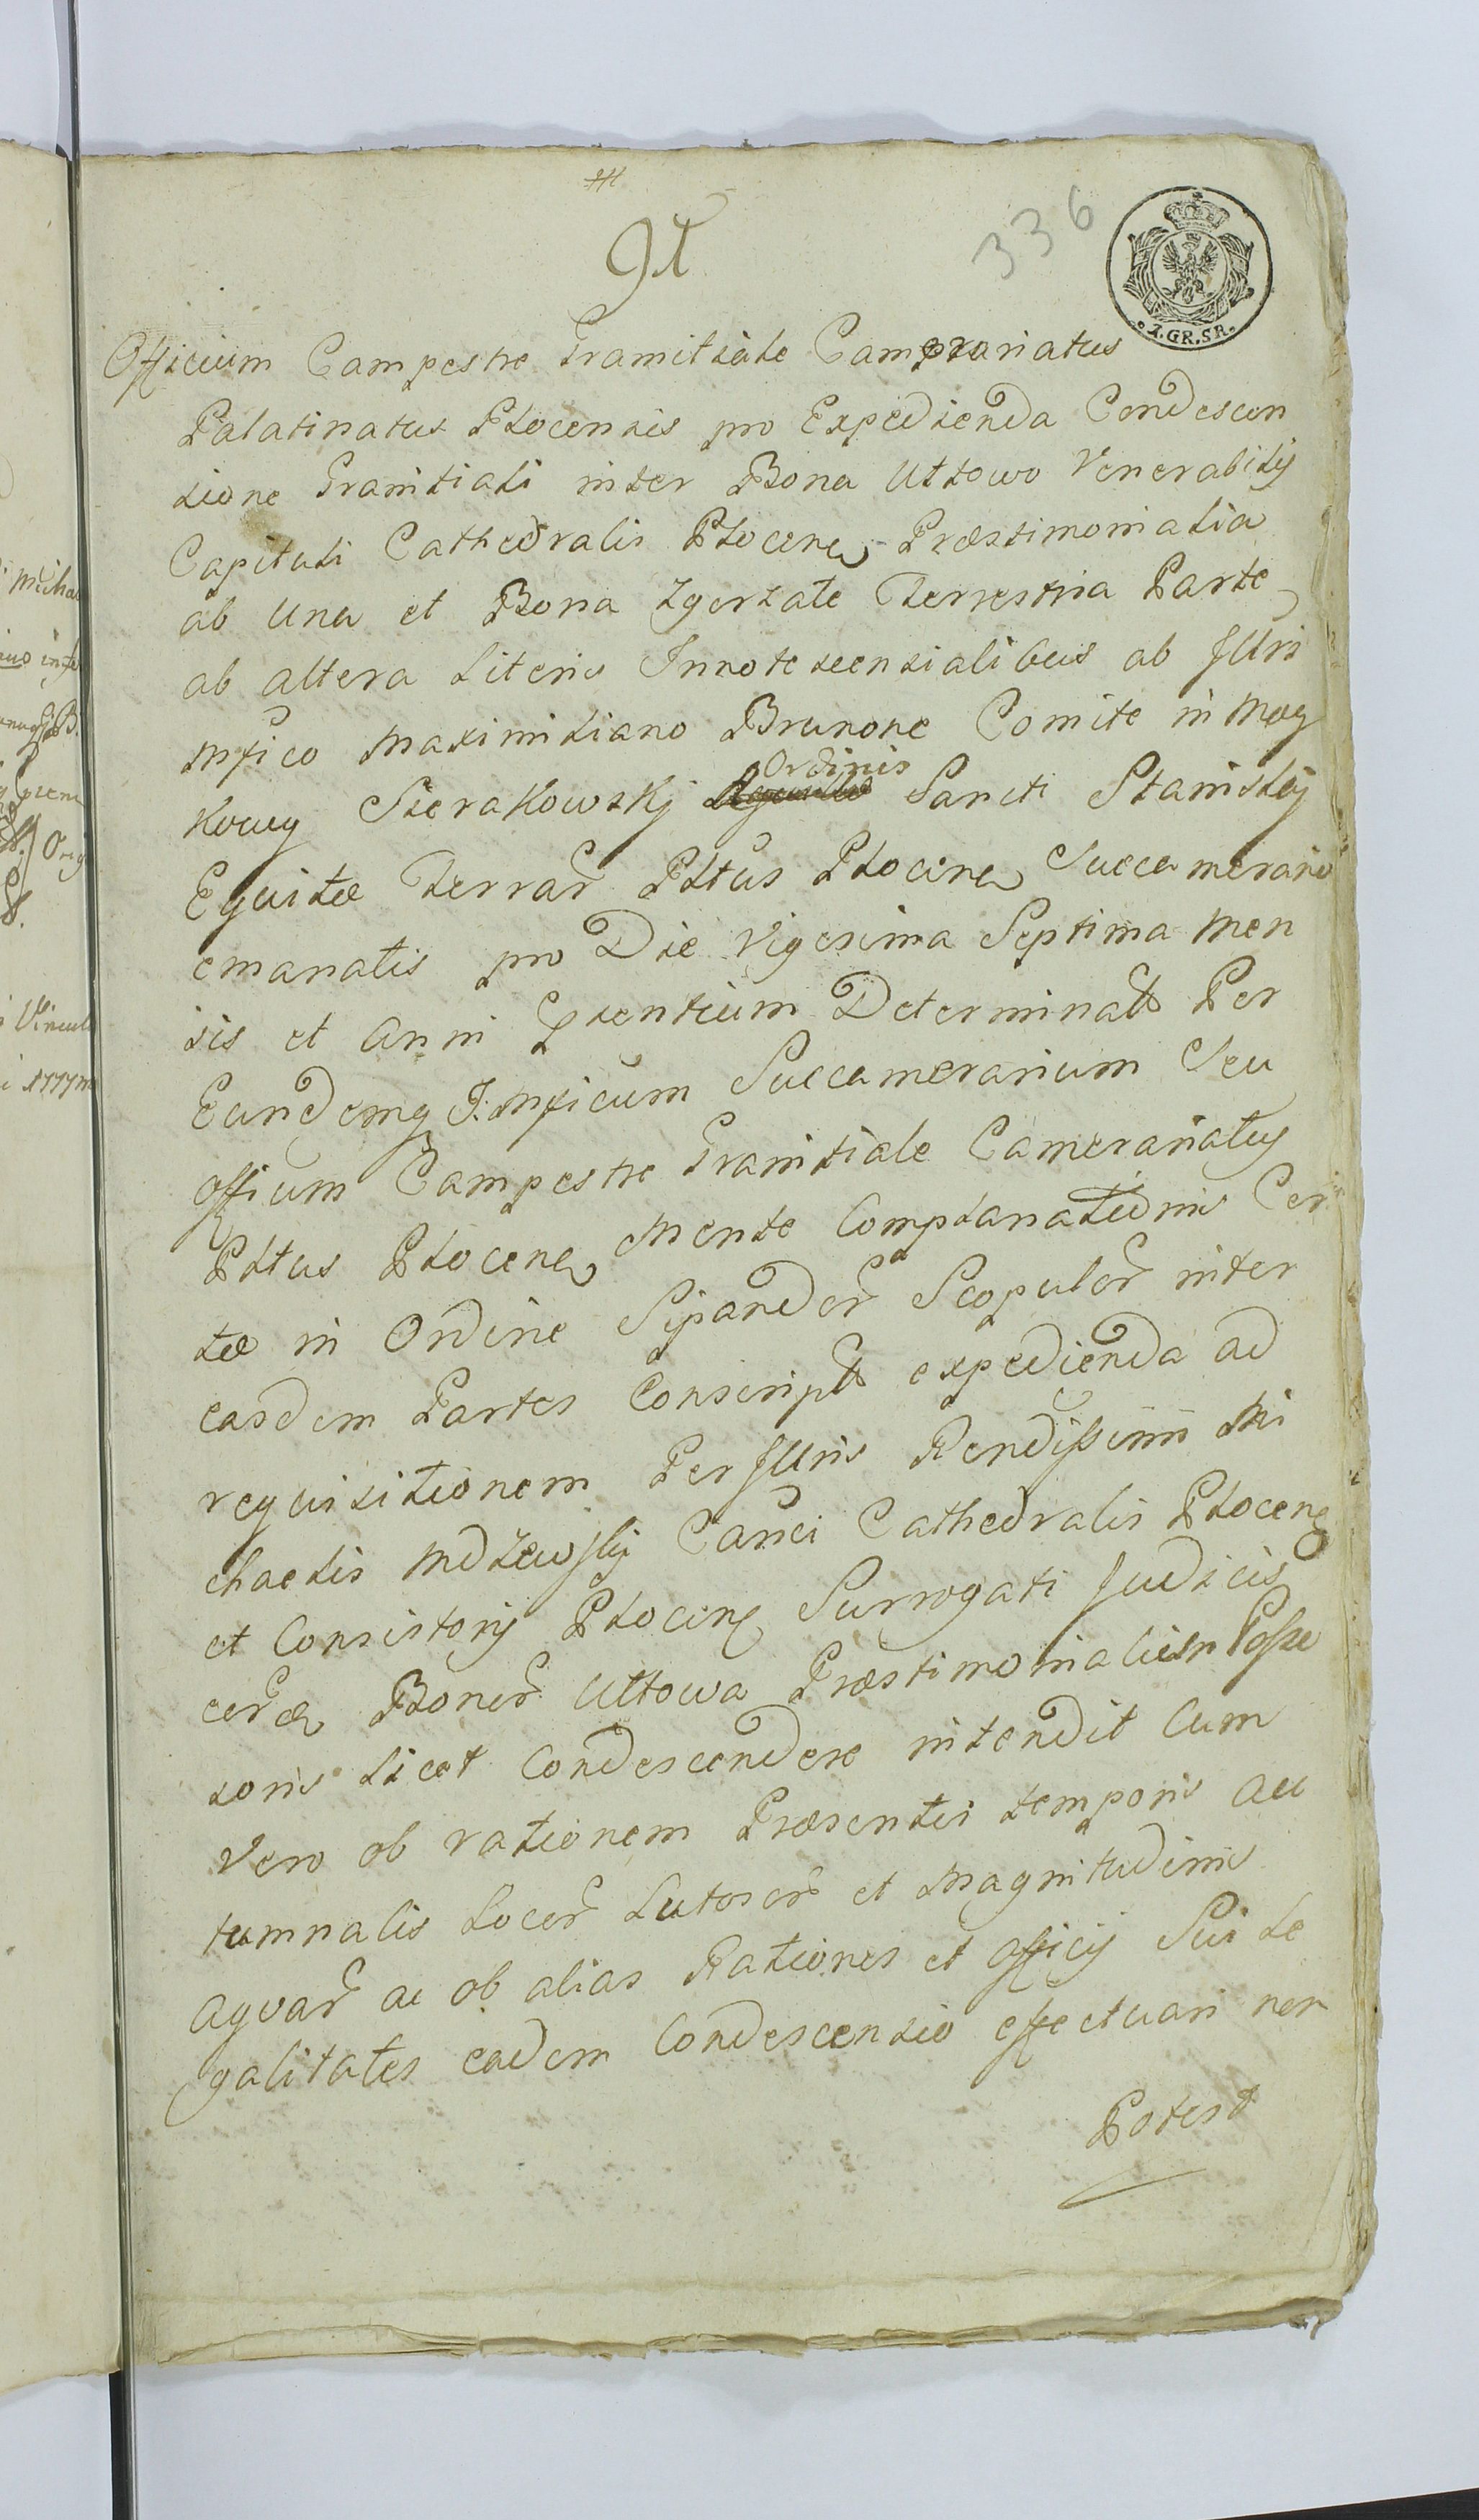 336
I.GR.SR.
Officium Campestre Granitiale Camerariatus
Palatinatus Plocensis pro Expedienda Condescen
sione Granitiali inter Bona Uttowo Venerabilis
Capituli Cathedralis Plocens Præstimonialia
ab una et Bona Zgorzałe Terrestria Parte
ab altera Literis Innotescensialibus ab Illri
Mfico Maximiliano Brunone Comite in Mag
kowy Sierakowskj Ordinis Sancti Stanislaj
Equite Terrar Pltus Plocens Succamerario
emanatis pro Die Vigesima Septima Men
sis et Anni Psentium Determinata Per
Eundemq J. Mficum Succamerarium Seu
officium Campestre Granitiale Camerariatus
Pltus Plocens Mente Complanationis Cer
tæ in Ordine Sipandor Scopulor inter
easdem Partes Conscripta expedienda ad
requisitionem Perillris Rendissimi Mi
chaelis Mdzewskj Canci Cathedralis Plocens
et Consistorij Plocens Surrogati Judicis
cerca Bonor Uttowa Præstimonialium Posse
soris licet Condescendere intendit Cum
Vero ob rationem Præsentis temporis Au
tumnalis Locor Lutosor et Magnitudinis
Aquar ac ob alias Rationes et officij Sui Le
galitates eadem Condescensio effectuari non
Potest